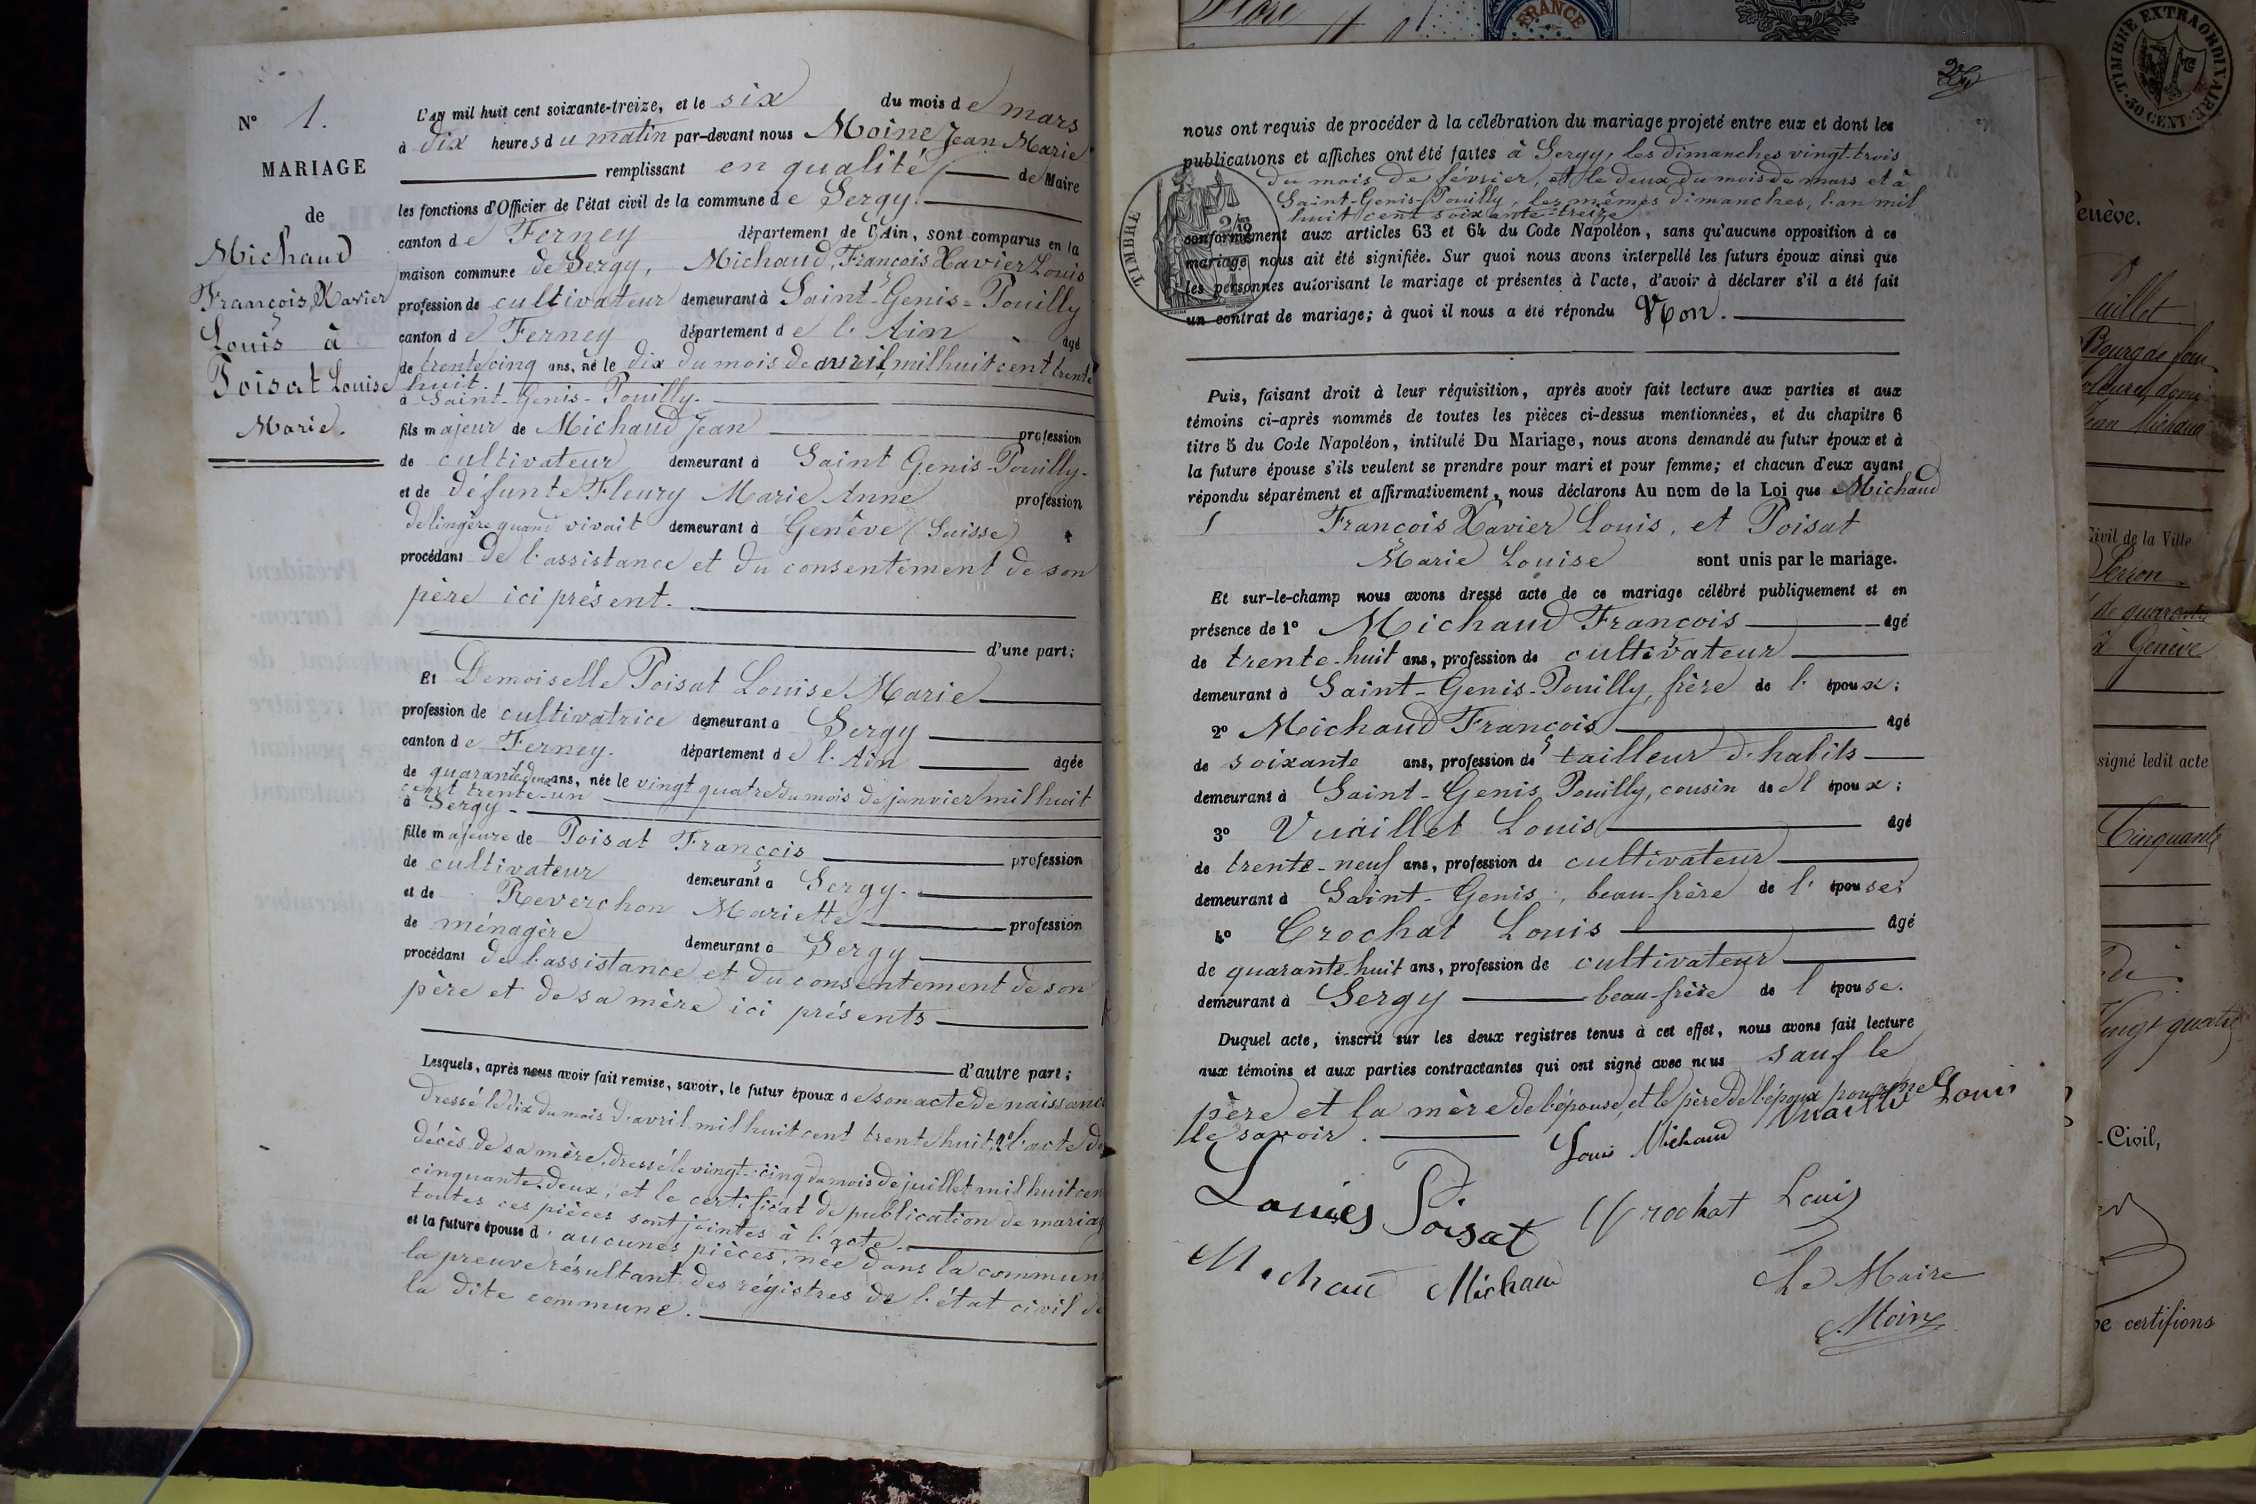 N° 1.
MARIAGE
de
Michaud
François Xavier
Louis à
Poisat Louise
Marie.
L'an mil huit cent soixante-treize, et le six du mois de mars
à dix heures du matin par-devant nous Moine Jean Marie
remplissant en qualité de Maire
les fonctions d'Officier de l'état civil de la commune de Sergy.
canton de Ferney département de l'Ain, sont comparus en la
maison commune de Sergy, Michaud, François Xavier Louis
profession de cultivateur demeurant à Saint-Genis-Pouilly
canton de Ferney département de l'Ain âgé
de trente cinq ans, né le dix du mois de avril, mil huit cent trente
huit.
à Saint-Genis-Pouilly.
fils majeur de Michaud Jean profession
de cultivateur demeurant à Saint Genis-Pouilly-
et de défunte Fleury Marie Anne profession
de lingère quand vivait demeurant à Genève (Suisse)
procédant de l'assistance et du consentement de son
père ici présent.
d'une part;
Et Demoiselle Poisat Louise Marie
profession de cultivatrice demeurant à Sergy
canton de Ferney. département de l'Ain âgée
de quarante deux ans, née le vingt quatre du mois de janvier mil huit
cent trente-un
à Sergy-
fille majeure de Poisat François profession
de cultivateur demeurant à Sergy.
et de Reverchon Mariette profession
de ménagère demeurant à Sergy
procédant de l'assistance et du consentement de son
père et de sa mère ici présents
d'autre part;
Lesquels, après nous avoir fait remise, savoir, le futur époux de son acte de naissance
dressé le dix du mois d'avril mil huit cent trente huit, 2° l'acte de
décès de sa mère, dressé le vingt-cinq du mois de juillet mil huit cen
cinquante-deux; et le certificat de publication de mariag
toutes ces pièces sont jointes à l'acte.
et la future épouse d'aucunes pièces, née dans la commun
la preuve résultant des régistres de l'état civil de
la dite commune.
nous ont requis de procéder à la célébration du mariage projeté entre eux et dont les
publications et affiches ont été faites à Sergy, les dimanches vingt-trois
du mois de février, et le deux du mois de mars et à
Saint-Genis-Pouilly, les mêmes dimanches, l'an mil
huit cent soixante-treize
TIMBRE
conformément aux articles 63 et 64 du Code Napoléon, sans qu'aucune opposition à ce
mariage nous ait été signifiée. Sur quoi nous avons interpellé les futurs époux ainsi que
les personnes autorisant le mariage et présentes à l'acte, d'avoir à déclarer s'il a été fait
un contrat de mariage; à quoi il nous a été répondu Non.
Puis, faisant droit à leur réquisition, après avoir fait lecture aux parties et aux
témoins ci-après nommés de toutes les pièces ci-dessus mentionnées, et du chapitre 6
titre 5 du Code Napoléon, intitulé Du Mariage, nous avons demandé au futur époux et à
la future épouse s'ils veulent se prendre pour mari et pour femme; et chacun d'eux ayant
répondu séparément et affirmativement, nous déclarons Au nom de la Loi que Michaud
François Xavier Louis, et Poisat
Marie Louise sont unis par le mariage.
Et sur-le-champ nous avons dressé acte de ce mariage célébré publiquement et en
présence de 1° Michaud François âgé
de trente-huit ans, profession de cultivateur
demeurant à Saint-Genis-Pouilly, frère de l'époux;
2° Michaud François âgé
de soixante ans, profession de tailleur d'habits
demeurant à Saint-Genis Pouilly, cousin de l'époux;
3° Vuaillet Louis âgé
de trente-neuf ans, profession de cultivateur
demeurant à Saint-Genis, beau-frère de l'épouse;
4° Crochat Louis âgé
de quarante-huit ans, profession de cultivateur
demeurant à Sergy beau-frère de l'épouse.
Duquel acte, inscrit sur les deux registres tenus à cet effet, nous avons fait lecture
aux témoins et aux parties contractantes qui ont signé avec nous sauf le
père et la mère de l'épouse, et le père de l'époux pour ne
le savoir.
Vuaillet Louis
Louis Michaud
Louies Poisat
Crochat Louis
Michau Michaud
Le Maire
Moine
FRANCE
TIMBRE EXTRAORDINAIRE
50 CENT.
Genève.
uillet
Jean Michaud
Civil de la Ville
Perron
de quarante
à Genève
signé ledit acte
Cinquante
vingt quatre
-Civil,
certifions